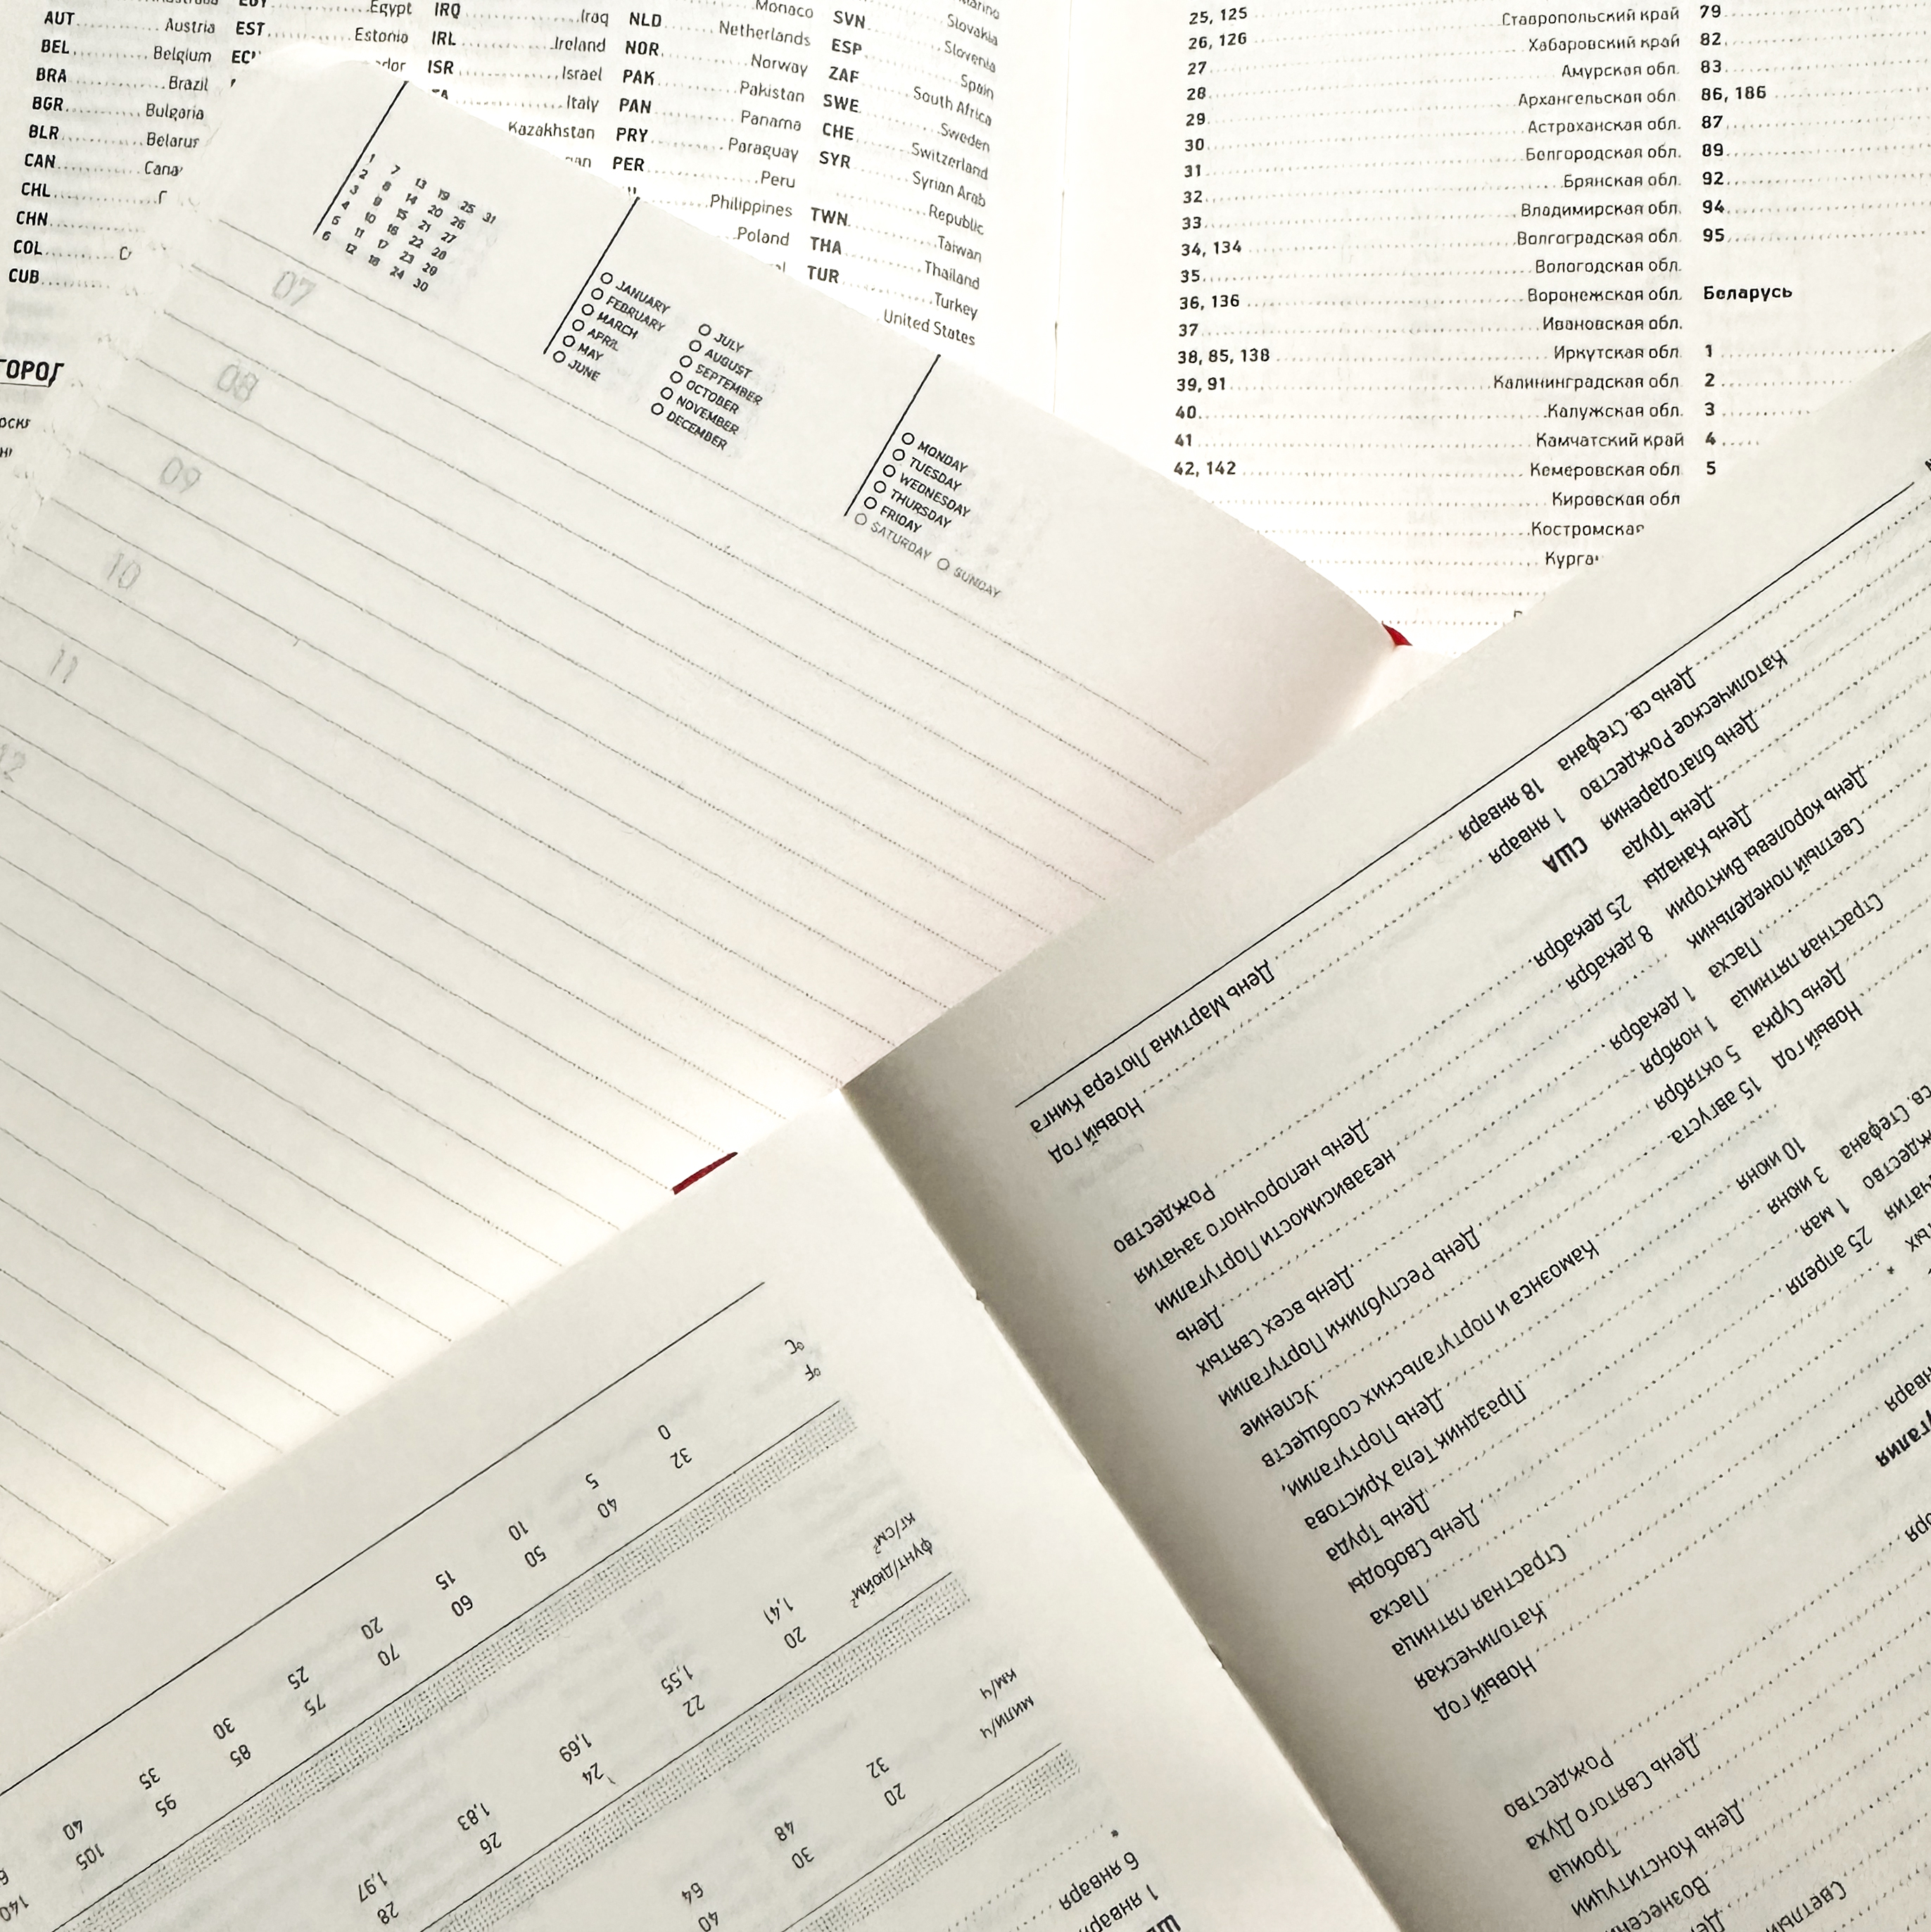 EGY Egypt
EST Estonia
AUT Austria
BEL Belgium
BRA Brazil
BGR Bulgaria
BLR Belarus
CAN
CHL
CHN
COL
CUB
IRQ Iraq
IRL Ireland
ISR Israel
Italy
Kazakhstan
Monaco
NLD Netherlands
NOR Norway
PAK Pakistan
PAN Panama
PRY Paraguay
PER Peru
Philippines
Poland
SVN Slovakia
Slovenia
ESP Spain
ZAF South Africa
SWE Sweden
CHE Switzerland
SYR Syrian Arab
Republic
TWN Taiwan
THA Thailand
TUR Turkey
United States
25, 125 Ставропольский край
26, 126 Хабаровский край
27 Амурская обл.
28 Архангельская обл.
29 Астраханская обл.
30 Белгородская обл.
31 Брянская обл.
32 Владимирская обл.
33 Волгоградская обл.
34, 134 Вологодская обл.
35 Воронежская обл.
36, 136 Ивановская обл.
37 Иркутская обл.
38, 85, 138 Калининградская обл.
39, 91 Калужская обл.
40 Камчатский край
41 Кемеровская обл.
42, 142 Кировская обл.
79
82
83
86, 186
87
89
92
94
95
Беларусь
1
2
3
4
5
1 7 13 19 25 31
2 8 14 20 26
3 9 15 21 27
4 10 16 22 28
5 11 17 23 29
6 12 18 24 30
JANUARY JULY
FEBRUARY AUGUST
MARCH SEPTEMBER
APRIL OCTOBER
MAY NOVEMBER
JUNE DECEMBER
MONDAY
TUESDAY
WEDNESDAY
THURSDAY
FRIDAY
SATURDAY SUNDAY
07
08
09
10
11
12
Новый год
Католическая
Страстная пятница
Пасха
25 апреля День Свободы
1 мая День Труда
3 июня Праздник Тела Христова
10 июня День Португалии,
Камоэнса и португальских сообществ
15 августа Успение
5 октября День Республики Португалии
1 ноября День всех Святых
1 декабря День
независимости Португалии
8 декабря День непорочного зачатия
25 декабря Рождество
США
1 января Новый год
18 января День Мартина Лютера Кинга
Новый год
День Сурка
Страстная пятница
Пасха
Светлый понедельник
День королевы Виктории
День Канады
День Труда
День благодарения
Католическое Рождество
День св. Стефана
День Конституции
Троица
День Святого Духа
Рождество
1 января
6 января
мили/ч 20 30 40
км/ч 32 48 64
фунт/дюйм² 20 22 24 26 28
кг/см² 1,41 1,55 1,69 1,83 1,97
°F 32 40 50 60 70 75 85 95 105 140
°C 0 5 10 15 20 25 30 35 40